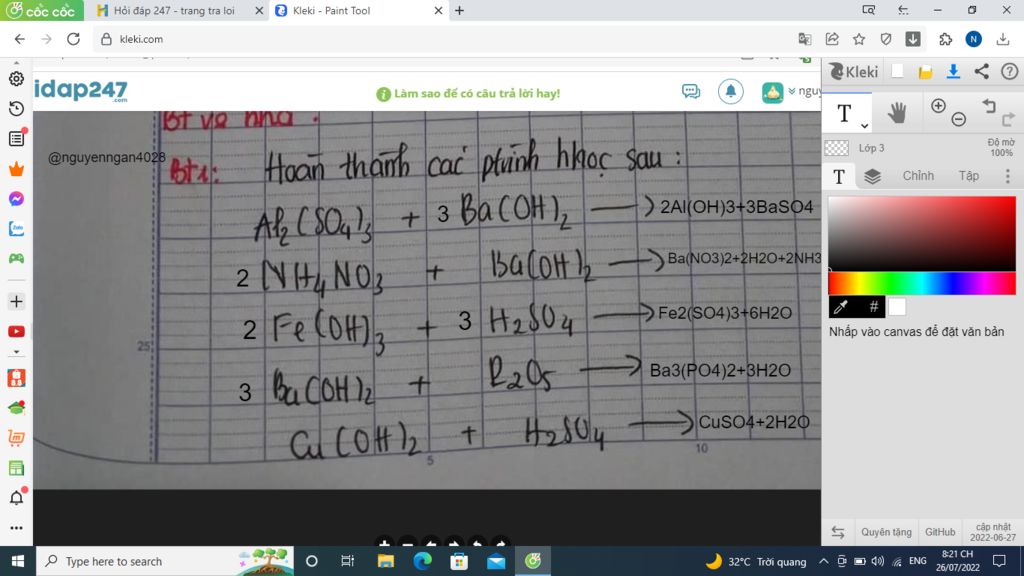 cốc cốc
Hỏi đáp 247 - trang tra loi
Kleki - Paint Tool
kleki.com
N
idap247
.com
Làm sao để có câu trả lời hay!
nguy
Zalo
BT về nhà.
@nguyenngan4028
BT1: Hoàn thành các phình hhọc sau:
Al2(SO4)3 + 3 Ba(OH)2 → 2Al(OH)3+3BaSO4
2 NH4NO3 + Ba(OH)2 → Ba(NO3)2+2H2O+2NH3
2 Fe(OH)3 + 3 H2SO4 → Fe2(SO4)3+6H2O
25
3 Ba(OH)2 + P2O5 → Ba3(PO4)2+3H2O
Cu(OH)2 + H2SO4 → CuSO4+2H2O
5
10
Kleki
T
Lớp 3
Độ mờ
100%
T
Chỉnh
Tập
#
Nhấp vào canvas để đặt văn bản
Quyên tặng
GitHub
cập nhật
2022-06-27
Type here to search
32°C Trời quang
ENG
8:21 CH
26/07/2022